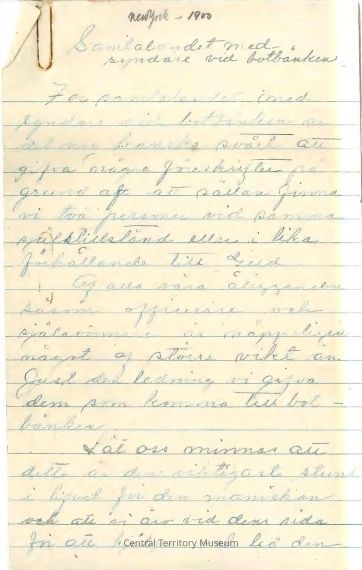 New York - 1900
Samtalandet med
syndare vid botbänken
För samtalandet med
syndare vid botbänken är
det nog ganska svårt att
gifva några föreskrifter på
grund af att sällan finna
vi två personer vid samma
själstillstånd eller i lika
förhållande till Gud
Af alla våra åligganden
såsom officerare och
själavinnare är näppeligen
något af större vikt än
just den ledning vi gifva
dem som komma till bot-
bänken.
Låt oss minnas att
dette är den viktigaste stund
i lifvet för den människan
och att vi äro vid dens sida
för att och led den
Central Territory Museum